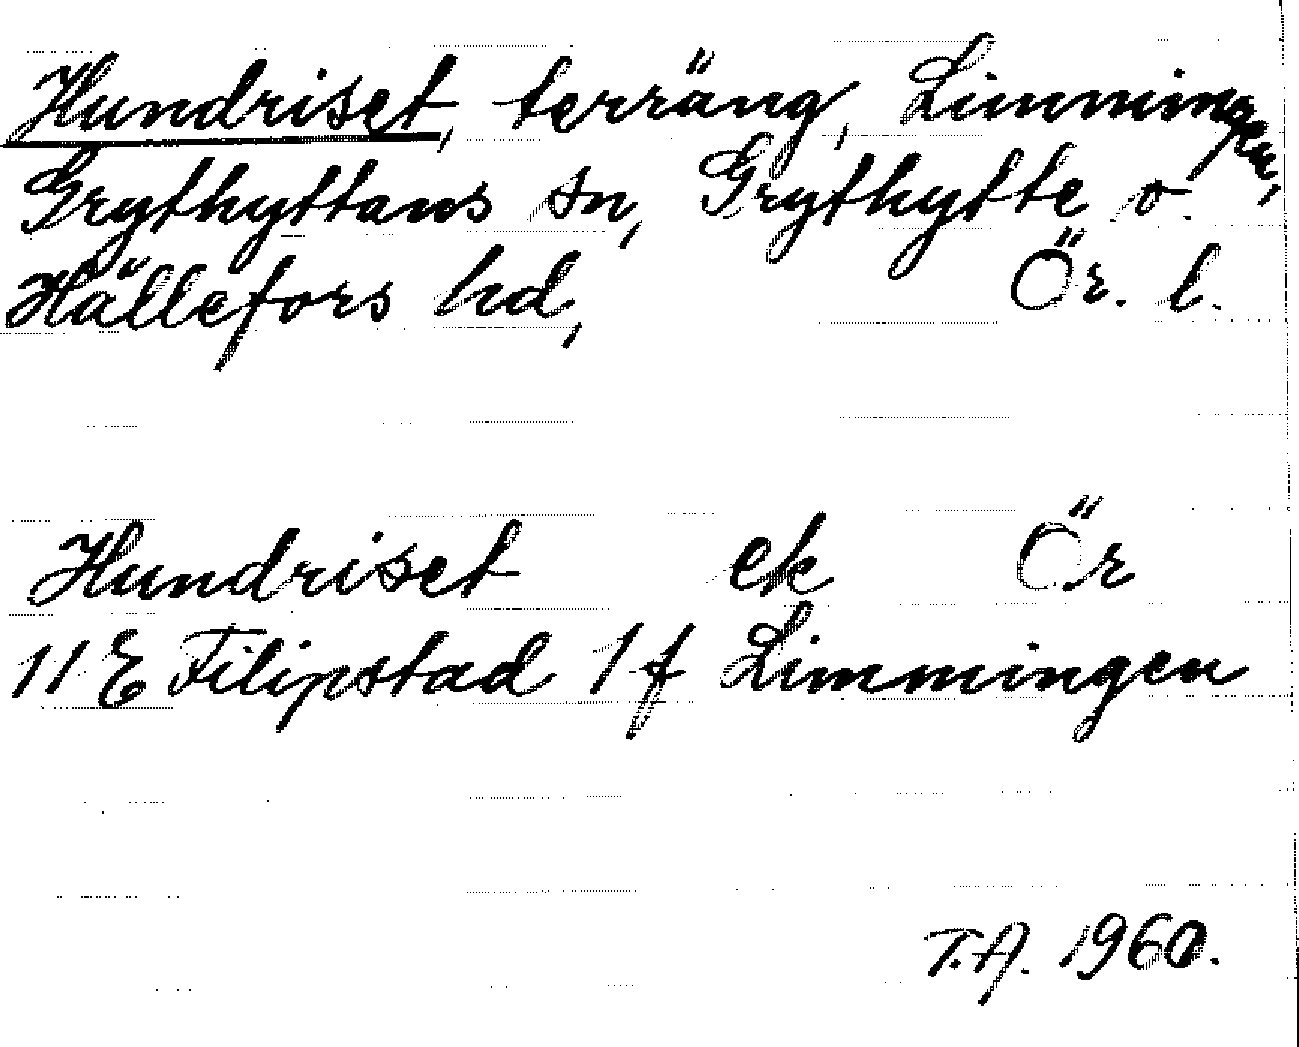 Hundriset, terräng, Limmingen,
Grythyttans sn, Grythytte o.
Hällefors hd, Ör. l.
Hundriset ek Ör
11 E Filipstad 1 f Limmingen
T.A. 1960.